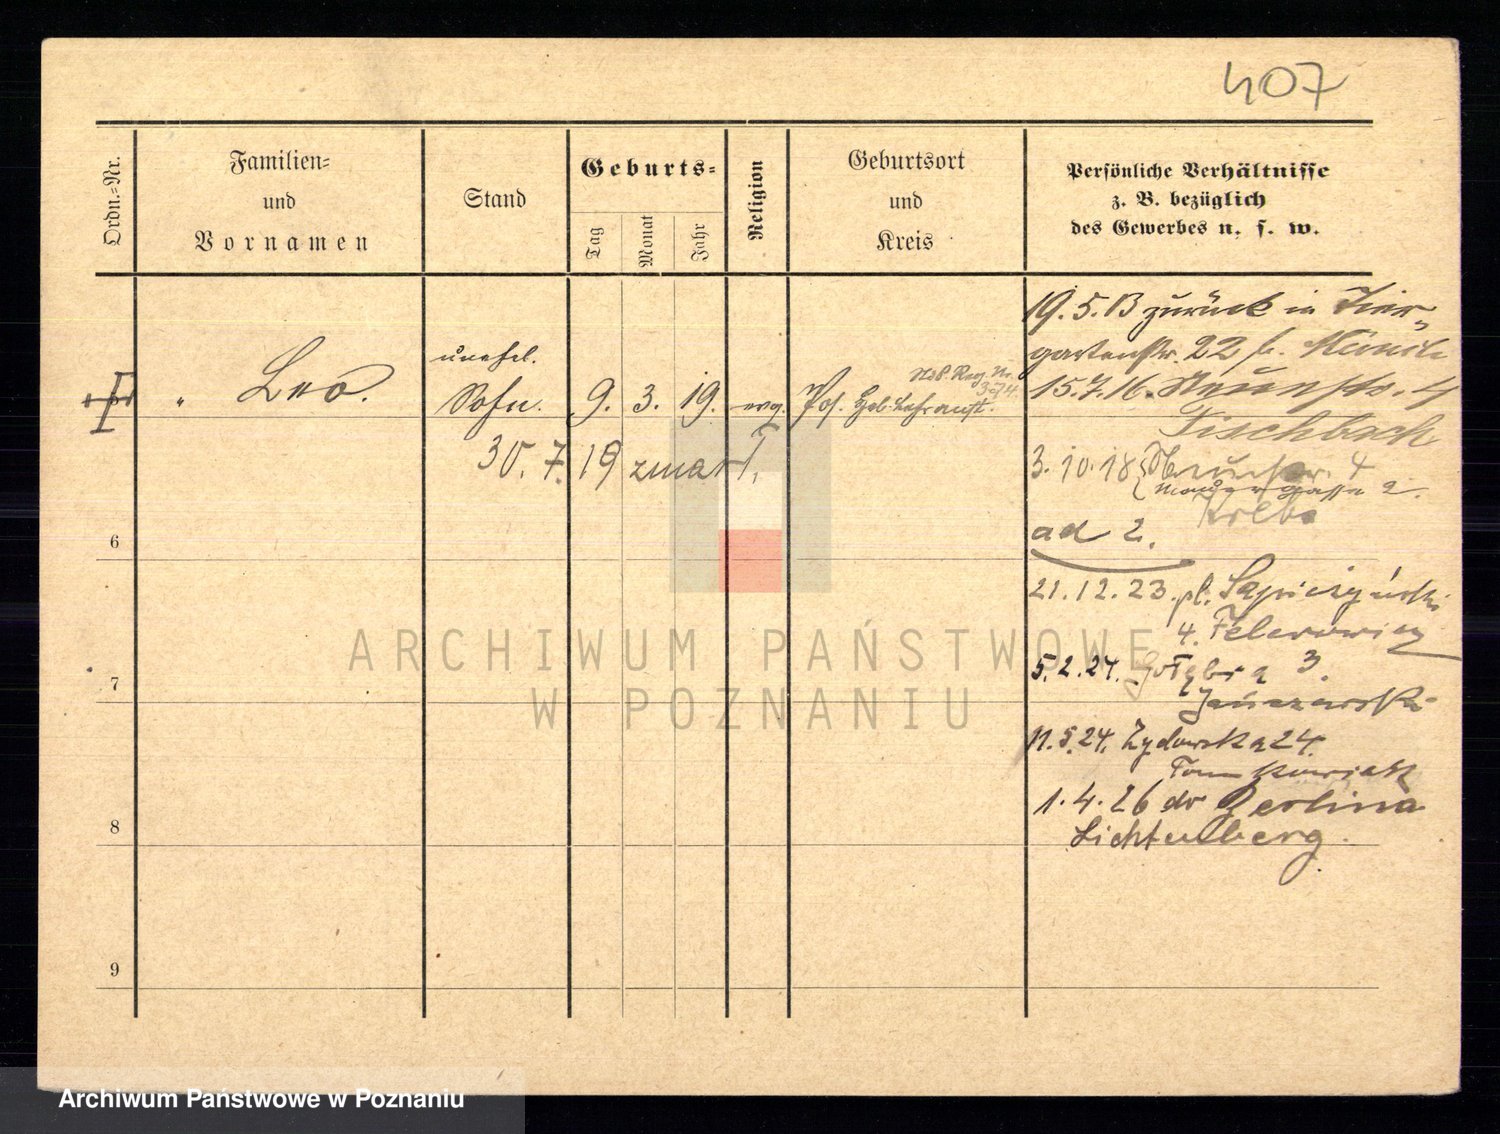 407
Ordn.=Nr.
Familien=
und
Vornamen
Stand
Geburts=
Tag
Monat
Jahr
Religion
Geburtsort
und
Kreis
Persönliche Verhältnisse
z. B. bezüglich
des Gewerbes u. s. w.
" Leo.
unehel.
Sohn. 9. 3. 19. evg. Pos.
Reg. Nr.
374
30. 7. 19 zmarł.
19. 5. 13 zurück in Tier-
gartenstr. 22 b.
15. 7. 16.
Fischbach
3. 10. 18
4
ad 2.
21. 12. 23. pl. Sapieżyński
4.
5. 2. 24. Gołębia 3.
11. 5. 24. Żydowska 24.
1. 4. 26 do Berlina
Lichtenberg.
6
7
8
9
ARCHIWUM PAŃSTWOWE
W POZNANIU
Archiwum Państwowe w Poznaniu